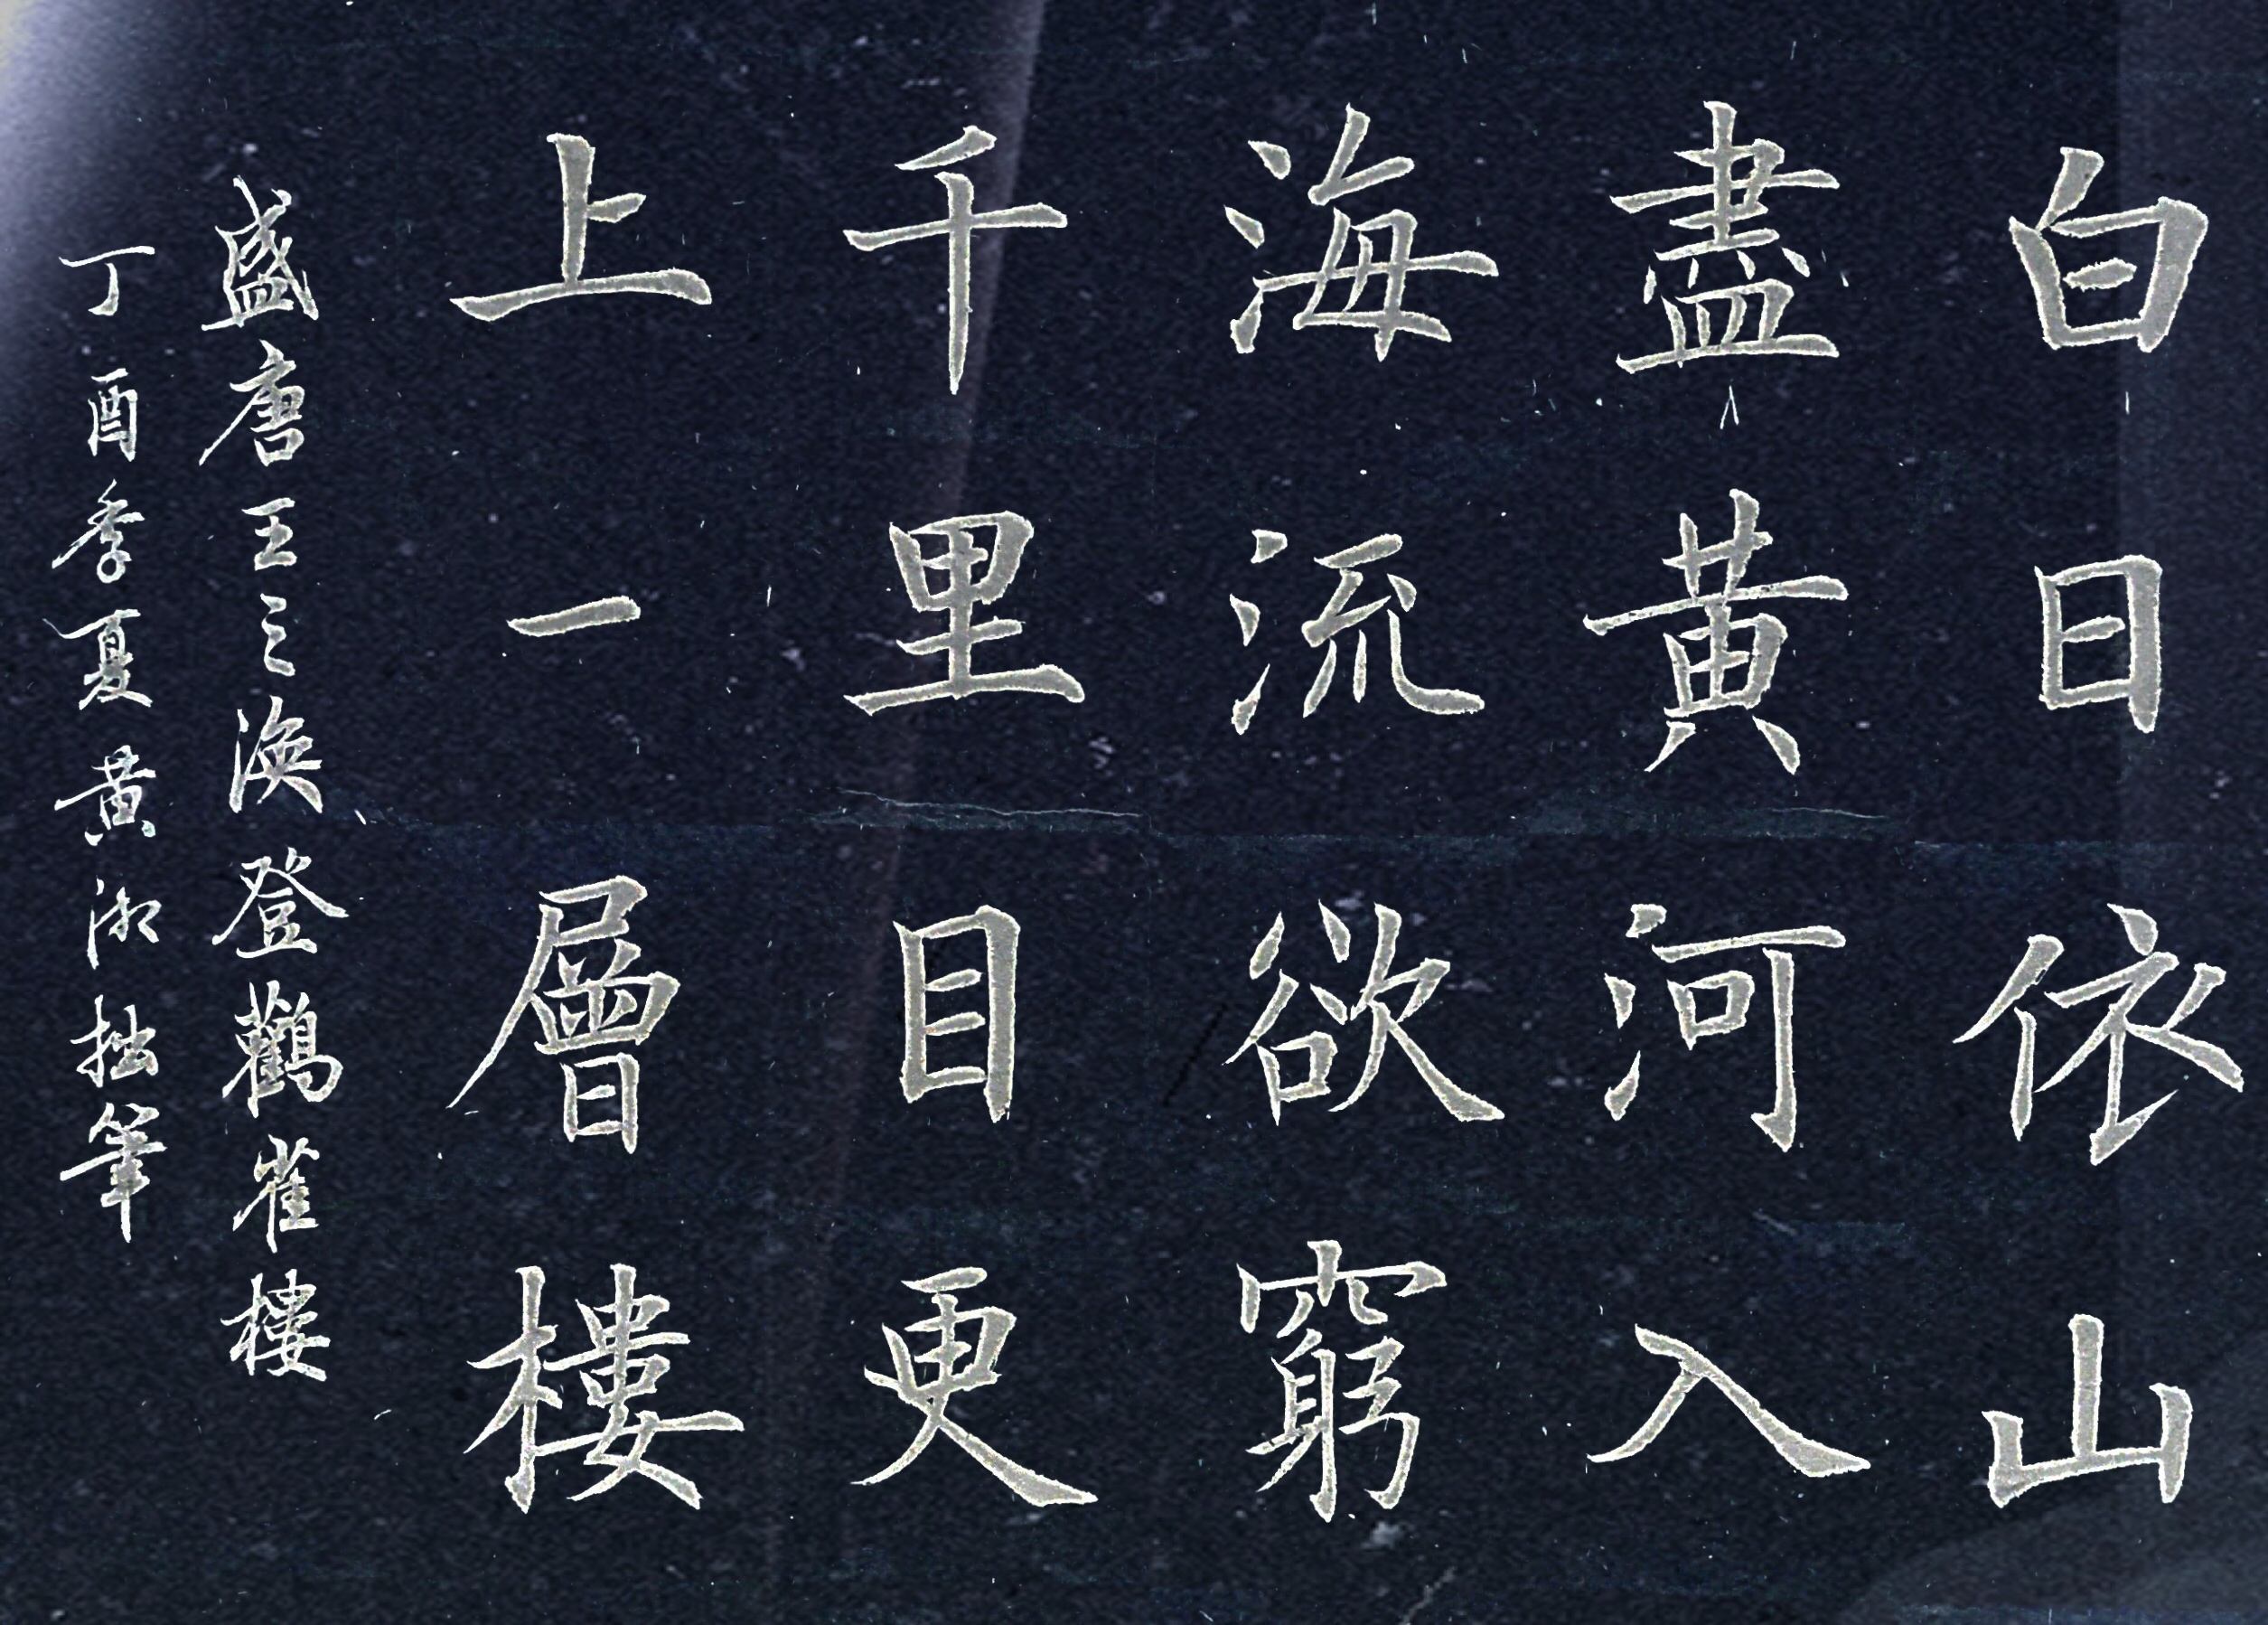 白日依山
盡黃河入
海流欲窮
千里目更
上一層樓
盛唐王之渙登鸛雀樓
丁酉季夏黃湘拙筆